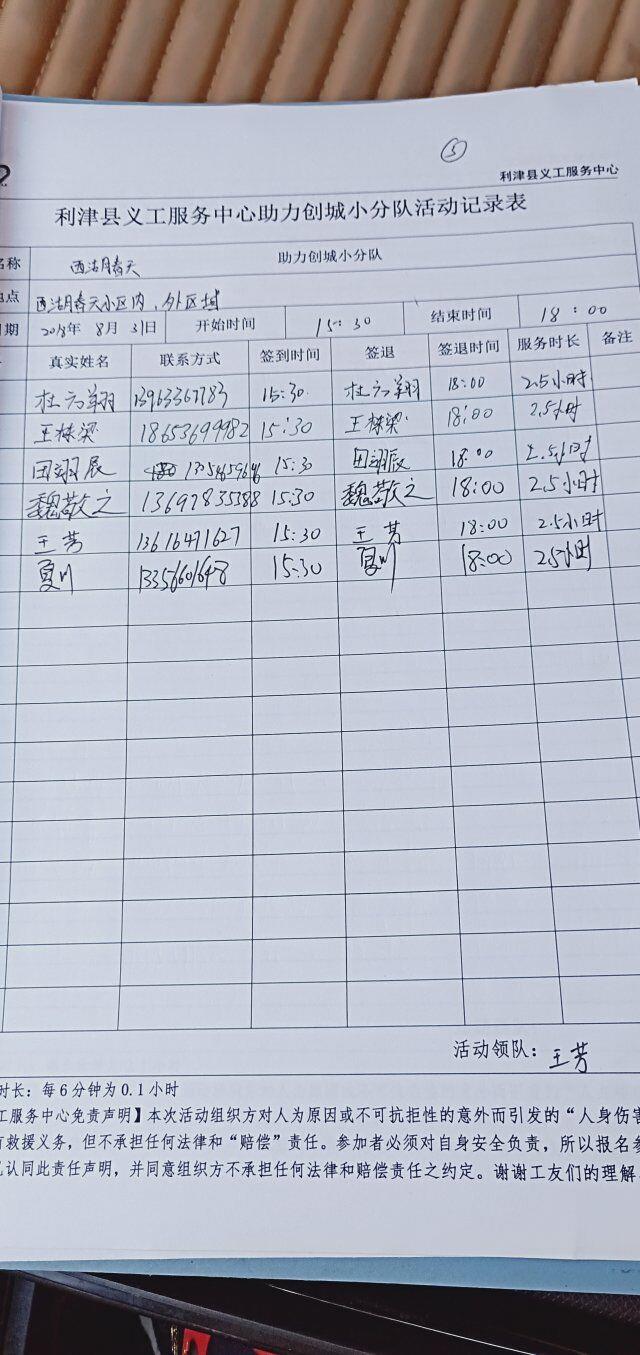 ⑤
利津县义工服务中心
利津县义工服务中心助力创城小分队活动记录表
名称 西湖春天 助力创城小分队
地点 西湖春天小区内,外区域
日期 2018年 8月 31日 开始时间 15:30 结束时间 18:00
真实姓名 联系方式 签到时间 签退 签退时间 服务时长 备注
13963367783 15:30 18:00 2.5小时
王栋梁 18653699982 15:30 王栋梁 18:00 2.5小时
田翊辰 15:30 田翊辰 18:00 2.5小时
魏敬之 13697835388 15:30 魏敬之 18:00 2.5小时
王芳 13616471627 15:30 王芳 18:00 2.5小时
夏川 13356601648 15:30 夏川 18:00 2.5小时
活动领队:王芳
时长:每6分钟为0.1小时
工服务中心免责声明】本次活动组织方对人为原因或不可抗拒性的意外而引发的“人身伤害
有救援义务,但不承担任何法律和“赔偿”责任。参加者必须对自身安全负责,所以报名参
认同此责任声明,并同意组织方不承担任何法律和赔偿责任之约定。谢谢工友们的理解